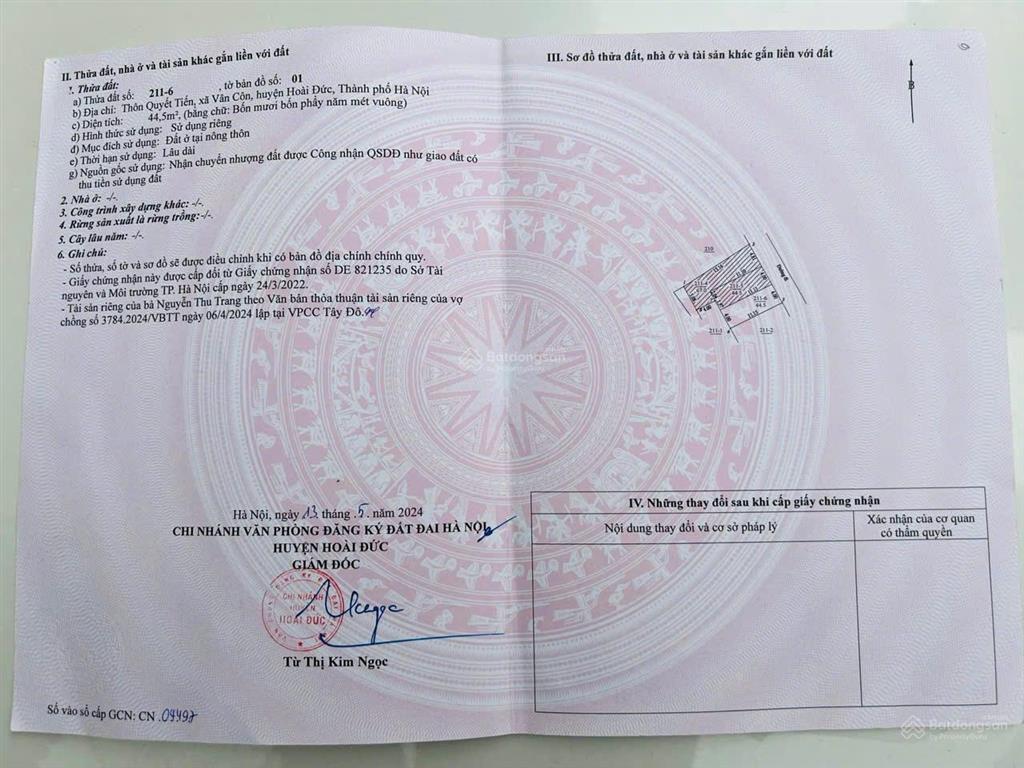 II. Thửa đất, nhà ở và tài sản khác gắn liền với đất
1. Thửa đất:
a) Thửa đất số: 211-6 , tờ bản đồ số: 01
b) Địa chỉ: Thôn Quyết Tiến, xã Vân Côn, huyện Hoài Đức, Thành phố Hà Nội
c) Diện tích: 44,5m², (bằng chữ: Bốn mươi bốn phẩy năm mét vuông)
d) Hình thức sử dụng: Sử dụng riêng
đ) Mục đích sử dụng: Đất ở tại nông thôn
e) Thời hạn sử dụng: Lâu dài
g) Nguồn gốc sử dụng: Nhận chuyển nhượng đất được Công nhận QSDĐ như giao đất có
thu tiền sử dụng đất
2. Nhà ở: -/-.
3. Công trình xây dựng khác: -/-.
4. Rừng sản xuất là rừng trồng:-/-.
5. Cây lâu năm: -/-.
6. Ghi chú:
- Số thửa, số tờ và sơ đồ sẽ được điều chỉnh khi có bản đồ địa chính chính quy.
- Giấy chứng nhận này được cấp đổi từ Giấy chứng nhận số DE 821235 do Sở Tài
nguyên và Môi trường TP. Hà Nội cấp ngày 24/3/2022.
- Tài sản riêng của bà Nguyễn Thu Trang theo Văn bản thỏa thuận tài sản riêng của vợ
chồng số 3784.2024/VBTT ngày 06/4/2024 lập tại VPCC Tây Đô.
Hà Nội, ngày 13 tháng 5 năm 2024
CHI NHÁNH VĂN PHÒNG ĐĂNG KÝ ĐẤT ĐAI HÀ NỘI
HUYỆN HOÀI ĐỨC
GIÁM ĐỐC
CHI NHÁNH
HUYỆN
HOÀI ĐỨC
Từ Thị Kim Ngọc
Số vào sổ cấp GCN: CN 04497
III. Sơ đồ thửa đất, nhà ở và tài sản khác gắn liền với đất
B
210
Đường đi
211-4
211-5
211-6
44.5
11.15
211-3
211-2
Batdongsan
by PropertyGuru
IV. Những thay đổi sau khi cấp giấy chứng nhận
Nội dung thay đổi và cơ sở pháp lý
Xác nhận của cơ quan
có thẩm quyền
Batdongsan
by PropertyGuru